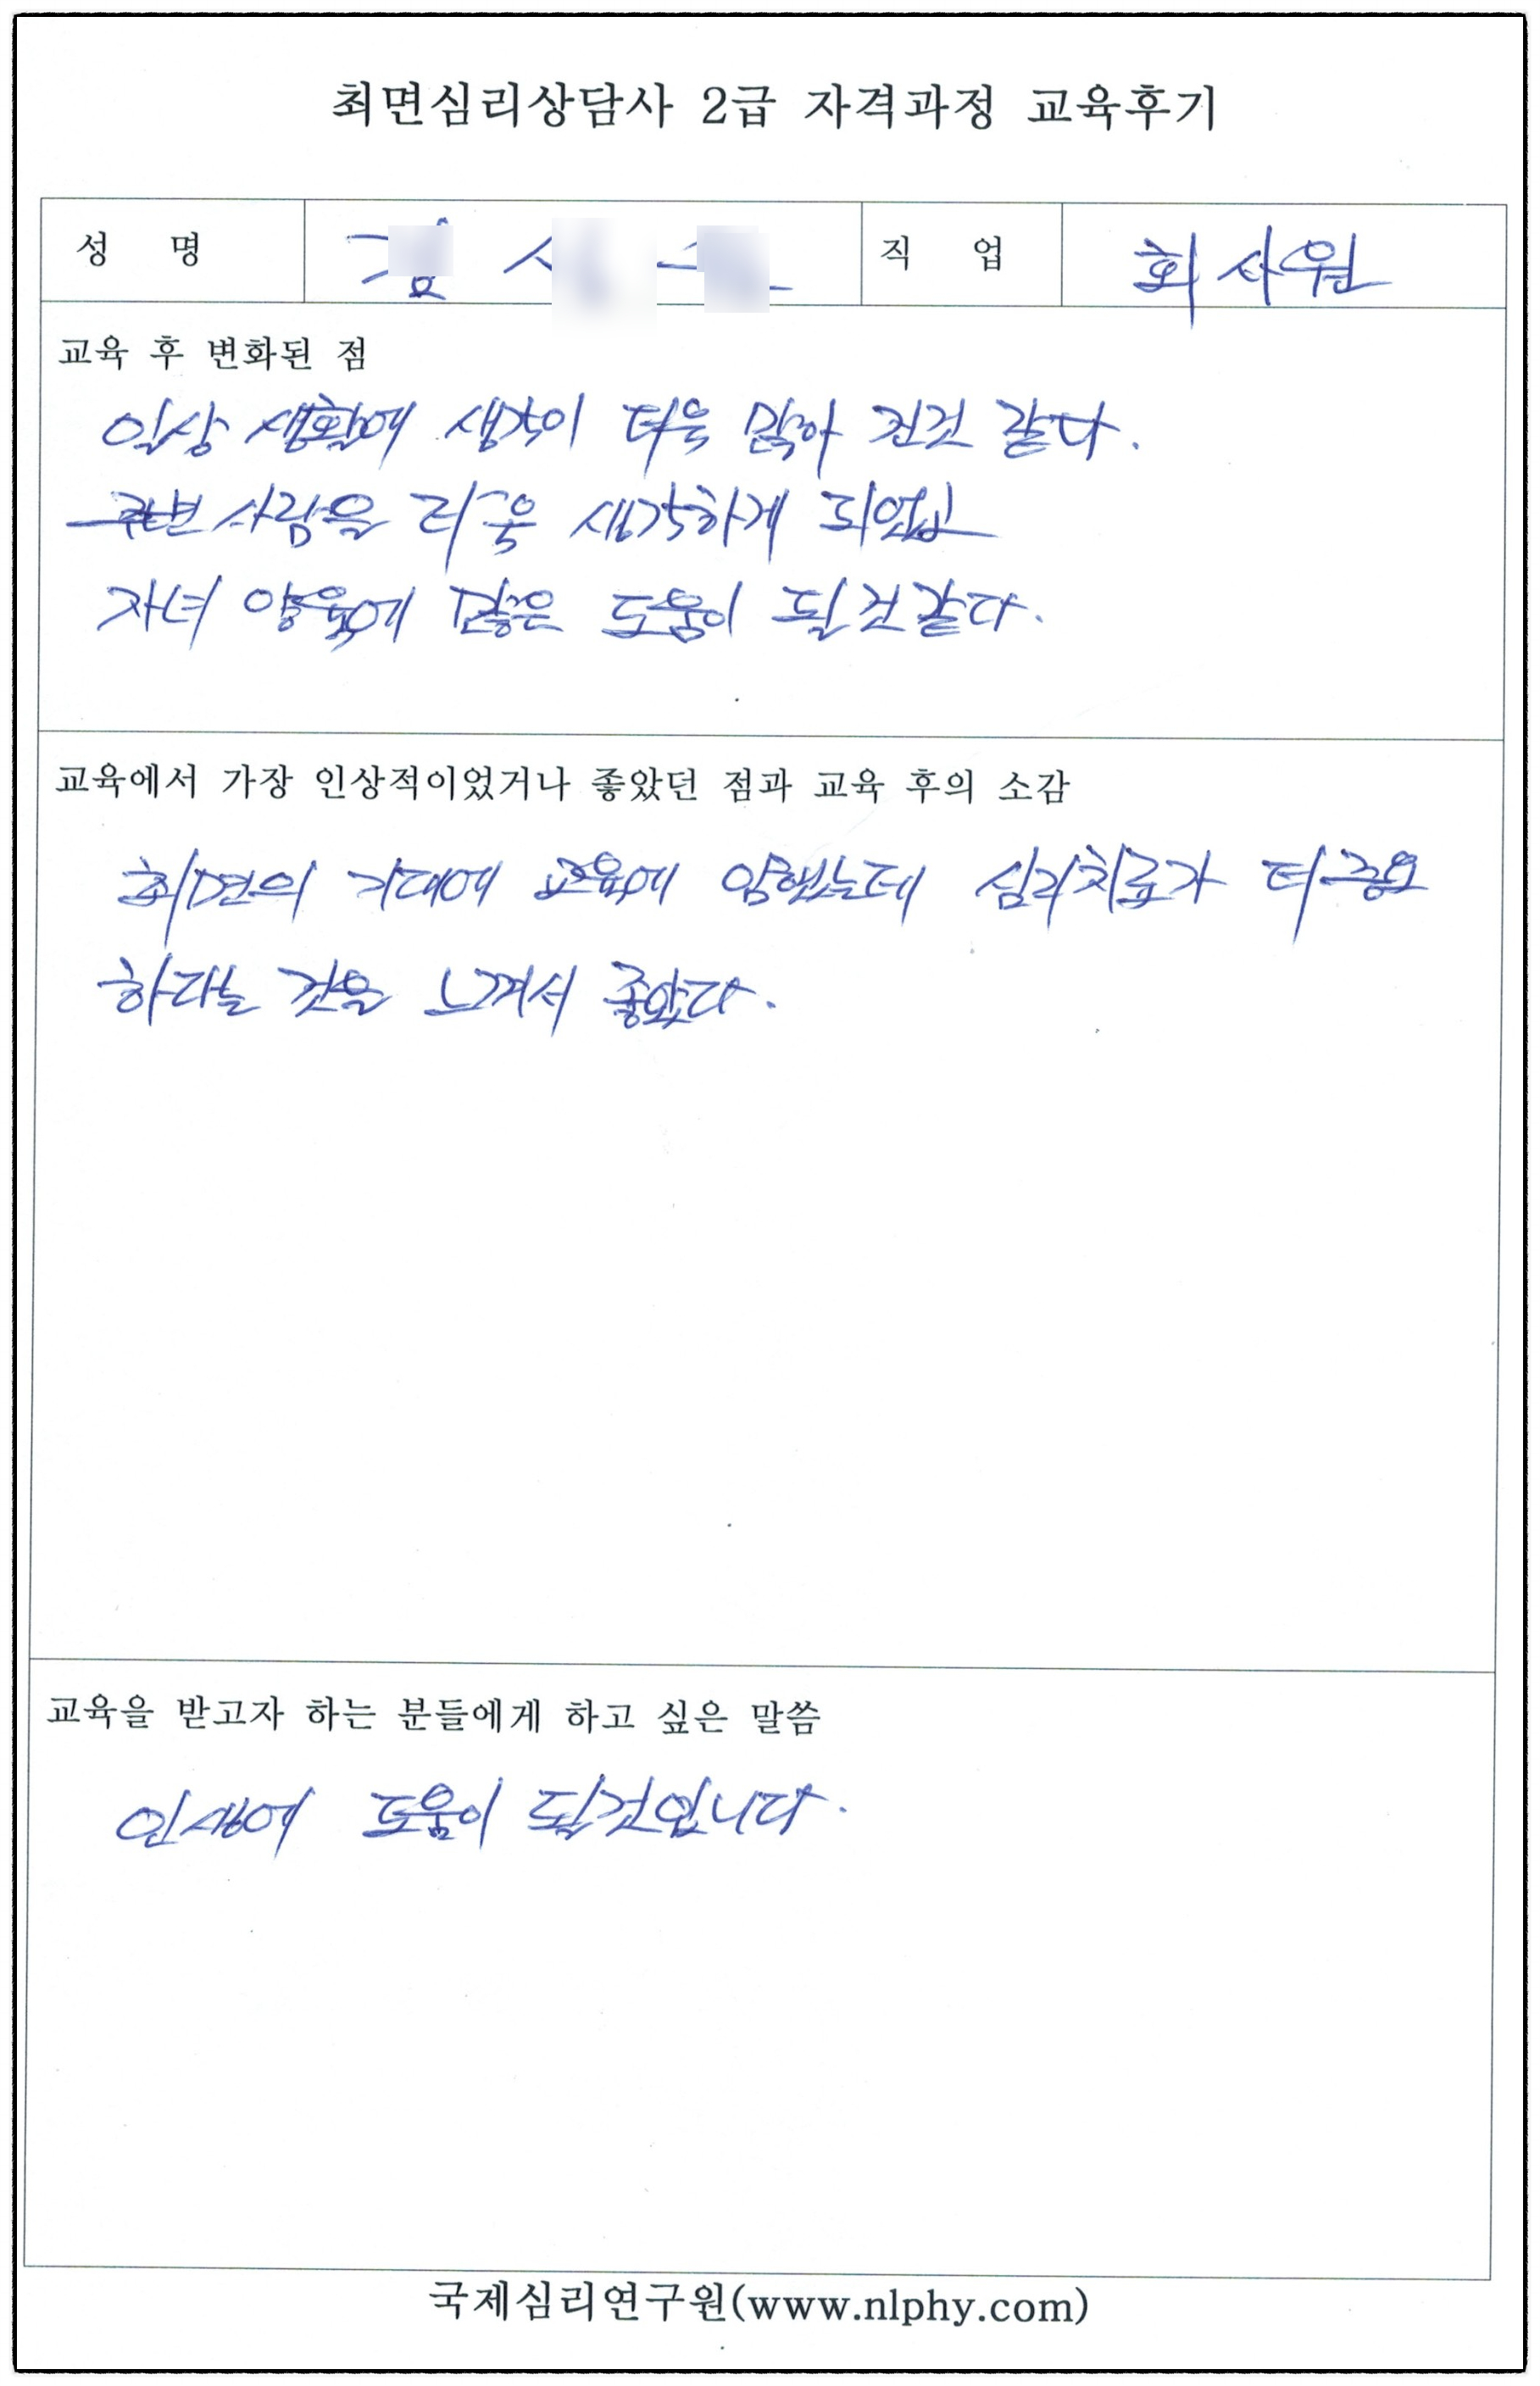 최면심리상담사 2급 자격과정 교육후기
성 명 직 업 회사원
교육 후 변화된 점
일상 생활에 생각이 더욱 맑아 진것 같다.
주변 사람을 더욱 생각하게 되었고
자녀 양육에 많은 도움이 될것같다.
교육에서 가장 인상적이었거나 좋았던 점과 교육 후의 소감
최면의 기대에 교육에 임했는데 심리치료가 더중요
하다는 것을 느껴서 좋았다.
교육을 받고자 하는 분들에게 하고 싶은 말씀
인생에 도움이 될것입니다.
국제심리연구원(www.nlphy.com)